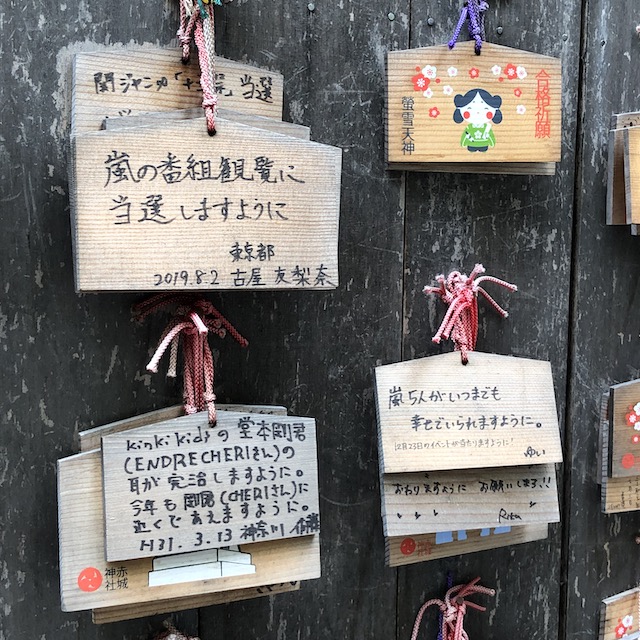 関ジャニの
当選
嵐の番組観覧に
当選しますように
東京都
2019.8.2 古屋 友梨奈
合格祈願
螢雪天神
嵐5人がいつまでも
幸せでいられますように。
12月23日のイベントが当たりますように!
ゆい
おわりますように お願いします!!
Rika
Kinki kidsの堂本剛君
(ENDRECHERIさん)の
耳が完治しますように。
今年も剛君(CHERIさん)に
近くであえますように。
H31.3.13 神奈川
赤城
神社